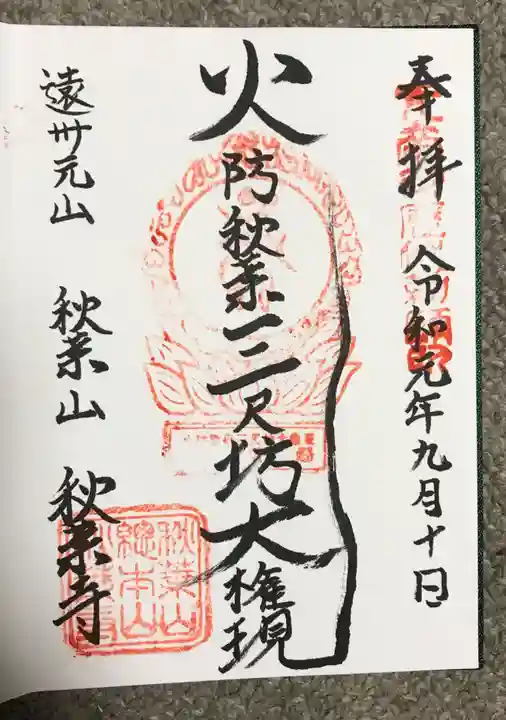 奉拝 令和元年九月十日
火防秋葉三尺坊大権現
遠卅元山 秋葉山 秋葉寺
秋葉山
總本山